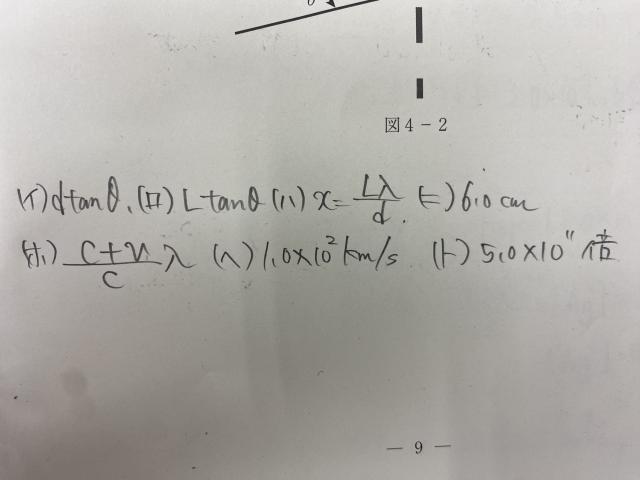 θ
図4-2
(イ) d tanθ. (ロ) L tanθ (ハ) x = Lλ/d. (ニ) 6.0 cm
(ホ) (C+v)/C λ (ヘ) 1.0×10² km/s (ト) 5.0×10¹¹ 倍
— 9 —